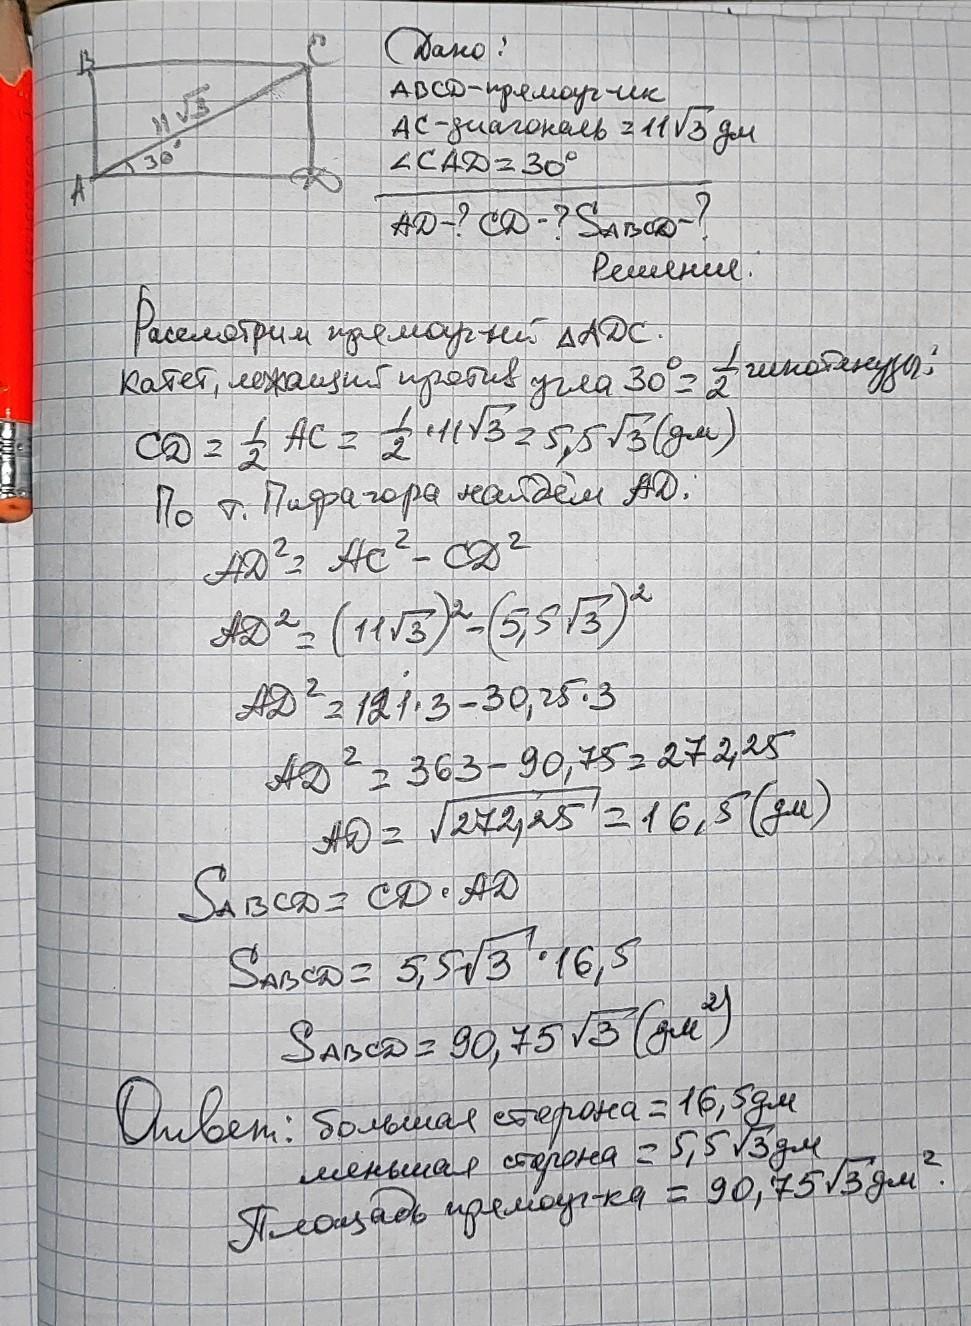 B
C
11√3
30°
A
D
Дано:
ABCD-прямоуг-ик
AC-диагональ = 11√3 дм
∠CAD = 30°
AD-? CD-? SABCD-?
Решение:
Рассмотрим прямоуг-ный △ADC.
Катет, лежащий против угла 30° = 1/2 гипотенузы:
CD = 1/2 AC = 1/2 · 11√3 = 5,5√3 (дм)
По т. Пифагора найдём AD:
AD² = AC² - CD²
AD² = (11√3)² - (5,5√3)²
AD² = 121·3 - 30,25·3
AD² = 363 - 90,75 = 272,25
AD = √272,25 = 16,5 (дм)
SABCD = CD · AD
SABCD = 5,5√3 · 16,5
SABCD = 90,75√3 (дм²)
Ответ: большая сторона = 16,5 дм
меньшая сторона = 5,5√3 дм
Площадь прямоуг-ка = 90,75√3 дм².